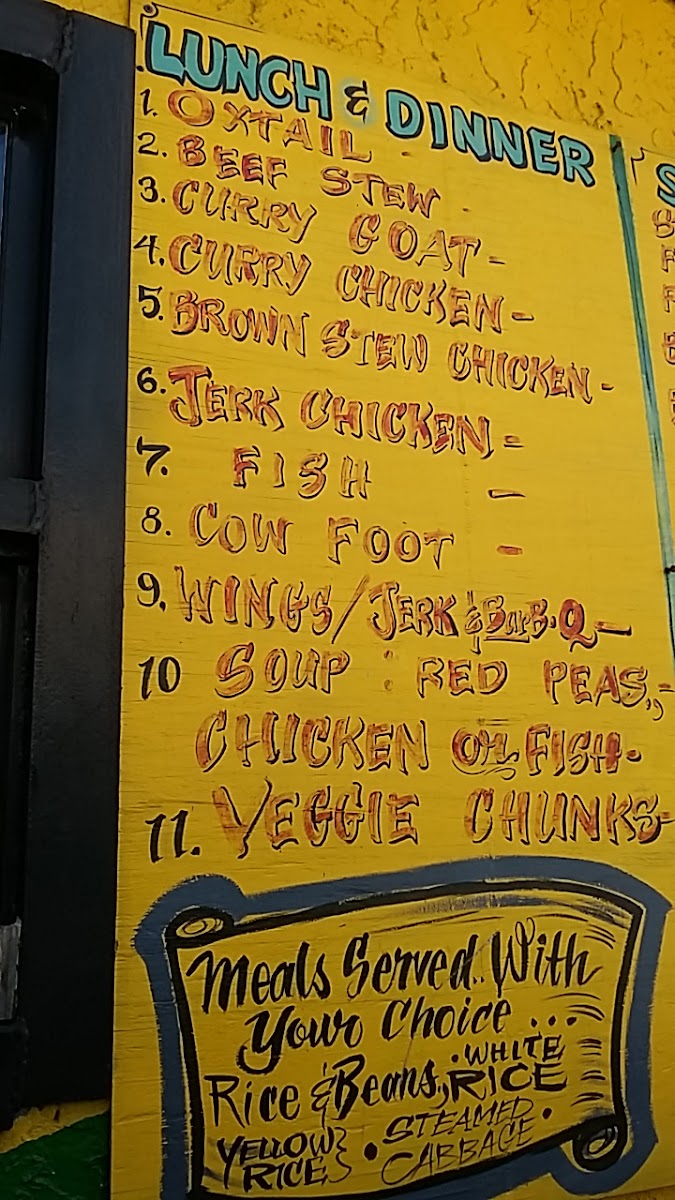 LUNCH & DINNER
1. OXTAIL -
2. BEEF STEW -
3. CURRY GOAT -
4. CURRY CHICKEN -
5. BROWN STEW CHICKEN -
6. JERK CHICKEN =
7. FISH -
8. COW FOOT -
9. WINGS/JERK & BarB.Q -
10 SOUP : RED PEAS,,-
CHICKEN OR FISH -
11. VEGGIE CHUNKS-
Meals Served.. With
Your Choice ...
Rice & Beans., . WHITE RICE
YELLOW RICE } • STEAMED CABBAGE •